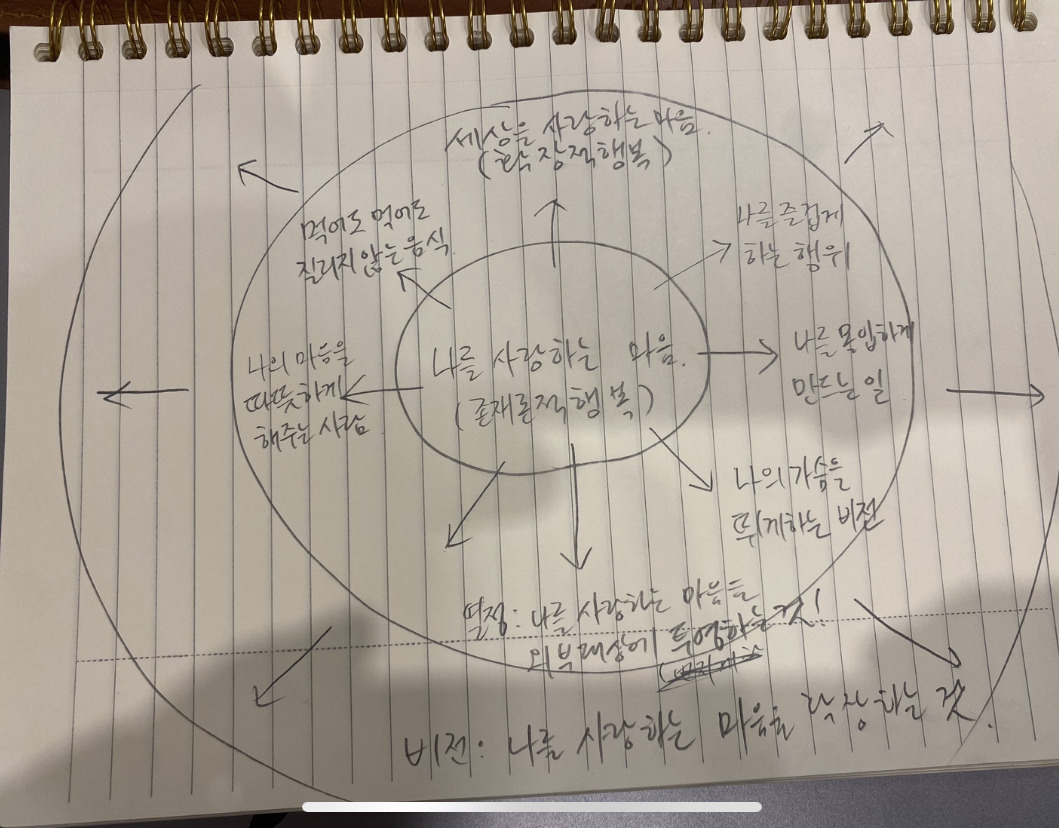 세상을 사랑하는 마음.
(확장적행복)
먹어도 먹어도
질리지 않는 음식
나를 즐겁게
하는 행위
나의 마음을
따뜻하게
해주는 사람
나를 사랑하는 마음.
(존재론적행복)
나를 몰입하게
만드는 일
나의 가슴을
뛰게하는 비전
열정: 나를 사랑하는 마음을
외부대상에 투영하는 것!
비전: 나를 사랑하는 마음을 확장하는 것.